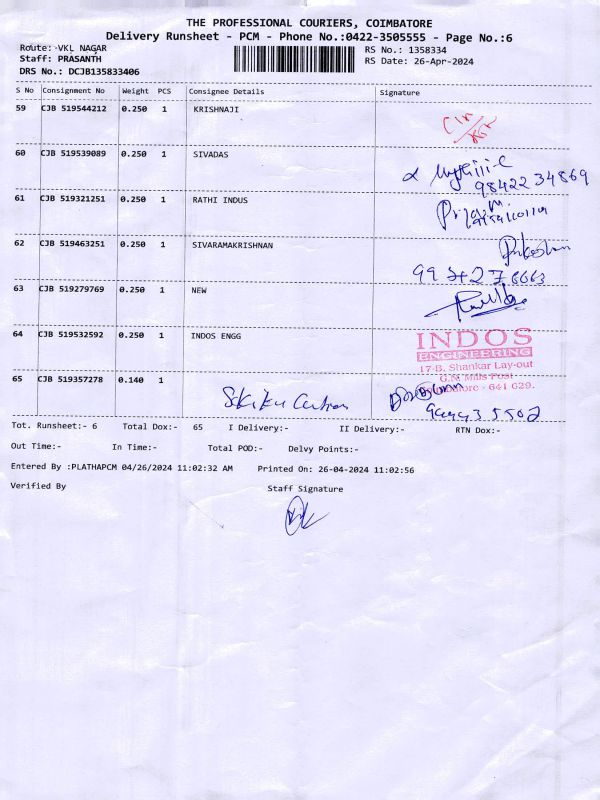 THE PROFESSIONAL COURIERS, COIMBATORE
Delivery Runsheet - PCM - Phone No.:0422-3505555 - Page No.:6
Route: VKL NAGAR
RS No.: 1358334
Staff: PRASANTH
RS Date: 26-Apr-2024
DRS No.: DCJB135833406
S No Consignment No Weight PCS Consignee Details Signature
59 CJB 519544212 0.250 1 KRISHNAJI
60 CJB 519539089 0.250 1 SIVADAS
98422 34869
61 CJB 519321251 0.250 1 RATHI INDUS
62 CJB 519463251 0.250 1 SIVARAMAKRISHNAN
63 CJB 519279769 0.250 1 NEW
64 CJB 519532592 0.250 1 INDOS ENGG
INDOS
ENGINEERING
17-B, Shankar Lay-out
G.N. Mills Post
Coimbatore - 641 029.
65 CJB 519357278 0.140 1
Tot. Runsheet:- 6 Total Dox:- 65 I Delivery:- II Delivery:- RTN Dox:-
Out Time:- In Time:- Total POD:- Delvy Points:-
Entered By :PLATHAPCM 04/26/2024 11:02:32 AM Printed On: 26-04-2024 11:02:56
Verified By Staff Signature